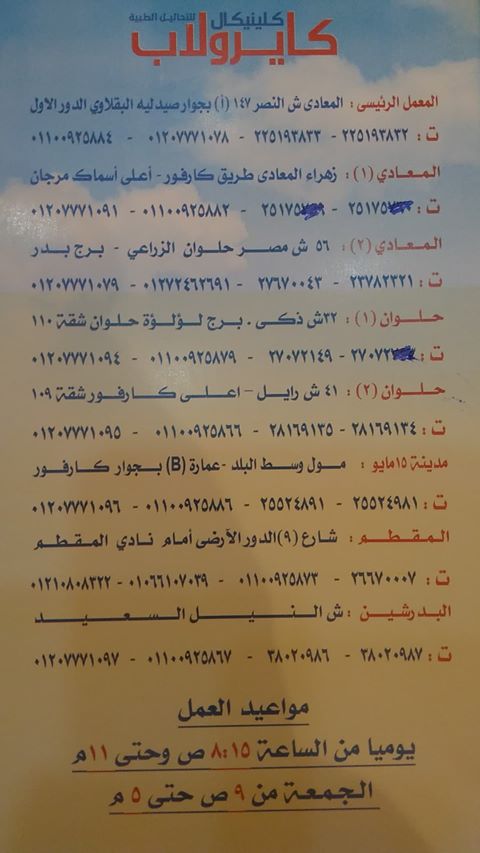 كلينيكال للتحاليل الطبية
كايرولاب
المعمل الرئيسى : المعادى ش النصر ١٤٧ (أ) بجوار صيدليه البقلاوي الدور الاول
ت : ٢٢٥١٩٣٨٣٢ - ٢٢٥١٩٣٨٣٣ - ٠١٢٠٧٧٧١٠٧٨ - ٠١١٠٠٩٢٥٨٨٤
المعادي (١) : زهراء المعادى طريق كارفور - أعلى أسماك مرجان
ت : ٢٥١٧٥ - ٢٥١٧٥ - ٠١١٠٠٩٢٥٨٨٢ - ٠١٢٠٧٧٧١٠٩١
المعادي (٢) : ٥٦ ش مصر حلوان الزراعي - برج بدر
ت : ٢٣٧٨٢٣٢١ - ٢٧٦٧٠٠٤٣ - ٠١٢٧٢٤٦٢٦٩١ - ٠١٢٠٧٧٧١٠٧٩
حلوان (١) : ٣٢ش ذكى . برج لؤلؤة حلوان شقة ١١٠
ت : ٢٧٠٧٢ - ٢٧٠٧٢١٤٩ - ٠١١٠٠٩٢٥٨٧٩ - ٠١٢٠٧٧٧١٠٩٤
حلوان (٢) : ٤١ ش رايل - اعلى كارفور شقة ١٠٩
ت : ٢٨١٦٩١٣٤ - ٢٨١٦٩١٣٥ - ٠١١٠٠٩٢٥٨٦٦ - ٠١٢٠٧٧٧١٠٩٥
مدينة ١٥مايو : مول وسط البلد -عمارة (B) بجوار كارفور
ت : ٢٥٥٢٤٩٨١ - ٢٥٥٢٤٨٩١ - ٠١١٠٠٩٢٥٨٨٦ - ٠١٢٠٧٧٧١٠٩٦
المقطم : شارع (٩)الدور الأرضى أمام نادي المقطم
ت : ٢٦٦٧٠٠٠٧ - ٠١١٠٠٩٢٥٨٧٣ - ٠١٠٦٦١٠٧٠٣٩ - ٠١٢١٠٨٠٨٣٢٢
البدرشين : ش النيل السعيد
ت : ٣٨٠٢٠٩٨٧ - ٣٨٠٢٠٩٨٦ - ٠١١٠٠٩٢٥٨٦٧ - ٠١٢٠٧٧٧١٠٩٧
مواعيد العمل
يوميا من الساعة ٨:١٥ ص وحتى ١١م
الجمعة من ٩ ص حتى ٥ م